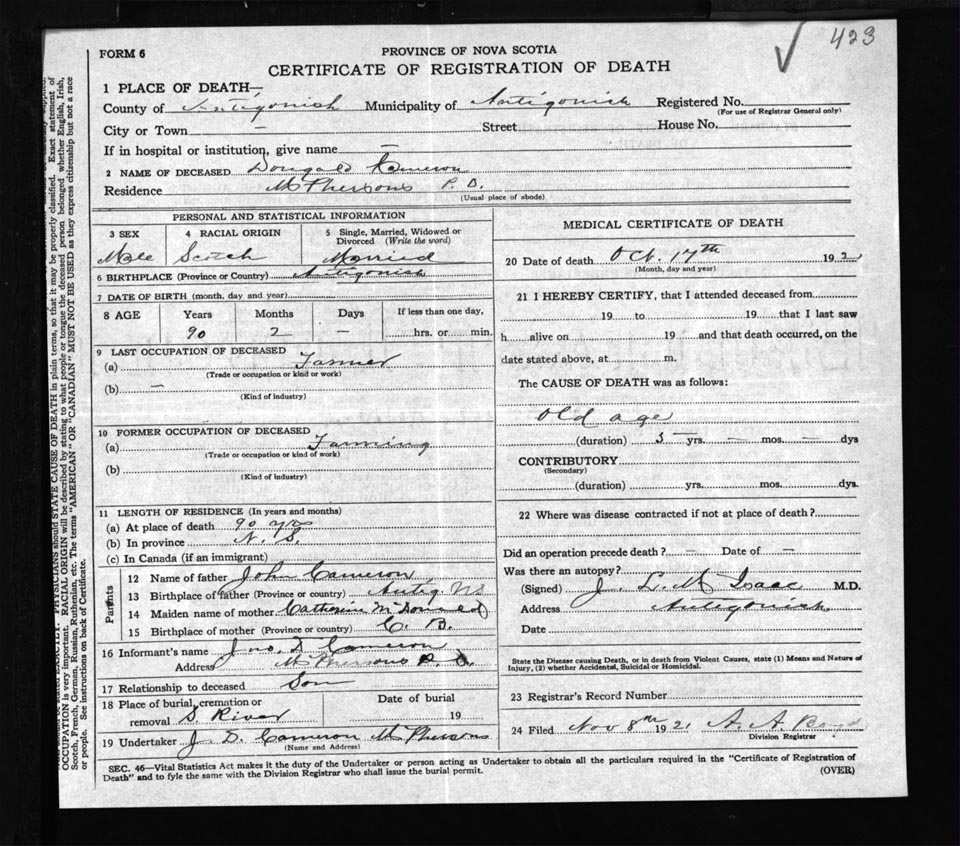 423
FORM 6
PROVINCE OF NOVA SCOTIA
CERTIFICATE OF REGISTRATION OF DEATH
1 PLACE OF DEATH—
County of Antigonish Municipality of Antigonish Registered No.
(For use of Registrar General only)
City or Town — Street House No.
If in hospital or institution, give name —
2 NAME OF DECEASED Dougald Cameron
Residence McPhersons P. O.
(Usual place of abode)
PERSONAL AND STATISTICAL INFORMATION
3 SEX 4 RACIAL ORIGIN 5 Single, Married, Widowed or Divorced (Write the word)
Male Scotch Married
6 BIRTHPLACE (Province or Country) Antigonish
7 DATE OF BIRTH (month, day and year)
8 AGE Years Months Days If less than one day,
90 2 — hrs. or min.
9 LAST OCCUPATION OF DECEASED
(a) Farmer
(Trade or occupation or kind or work)
(b) —
(Kind of industry)
10 FORMER OCCUPATION OF DECEASED
(a) Farming
(Trade or occupation or kind of work)
(b)
(Kind of industry)
11 LENGTH OF RESIDENCE (In years and months)
(a) At place of death 90 yrs
(b) In province N. S.
(c) In Canada (if an immigrant)
Parents
12 Name of father John Cameron
13 Birthplace of father (Province or country) Antig. NS
14 Maiden name of mother Catherine McDonald
15 Birthplace of mother (Province or country) C. B.
16 Informant's name Jno. D. Cameron
Address McPhersons P. O.
17 Relationship to deceased Son
18 Place of burial, cremation or removal S. River
Date of burial
19
19 Undertaker J. D. Cameron McPhersons
(Name and Address)
MEDICAL CERTIFICATE OF DEATH
20 Date of death Oct. 17th 192
(Month, day and year)
21 I HEREBY CERTIFY, that I attended deceased from
19 to 19 that I last saw
h alive on 19 and that death occurred, on the
date stated above, at m.
The CAUSE OF DEATH was as follows:
Old age
(duration) 3 yrs. — mos. — dys
CONTRIBUTORY
(Secondary)
(duration) yrs. mos. dys.
22 Where was disease contracted if not at place of death?
Did an operation precede death? — Date of —
Was there an autopsy?
(Signed) J. L. McIsaac M.D.
Address Antigonish
Date
State the Disease causing Death, or in death from Violent Causes, state (1) Means and Nature of
Injury, (2) whether Accidental, Suicidal or Homicidal.
23 Registrar's Record Number
24 Filed Nov 8th 1921 A. A. Boyd
Division Registrar
SEC. 46—Vital Statistics Act makes it the duty of the Undertaker or person acting as Undertaker to obtain all the particulars required in the "Certificate of Registration of
Death" and to fyle the same with the Division Registrar who shall issue the burial permit.
(OVER)
EXACTLY. PHYSICIANS should STATE CAUSE OF DEATH in plain terms, so that it may be properly classified. Exact statement of
OCCUPATION is very important. RACIAL ORIGIN will be described by stating to what people or tongue the deceased person belonged whether English, Irish,
Scotch, French, German, Russian, Ruthenian, etc. The terms "AMERICAN" OR "CANADIAN" MUST NOT BE USED as they express citizenship but not a race
or people. See instructions on back of Certificate.